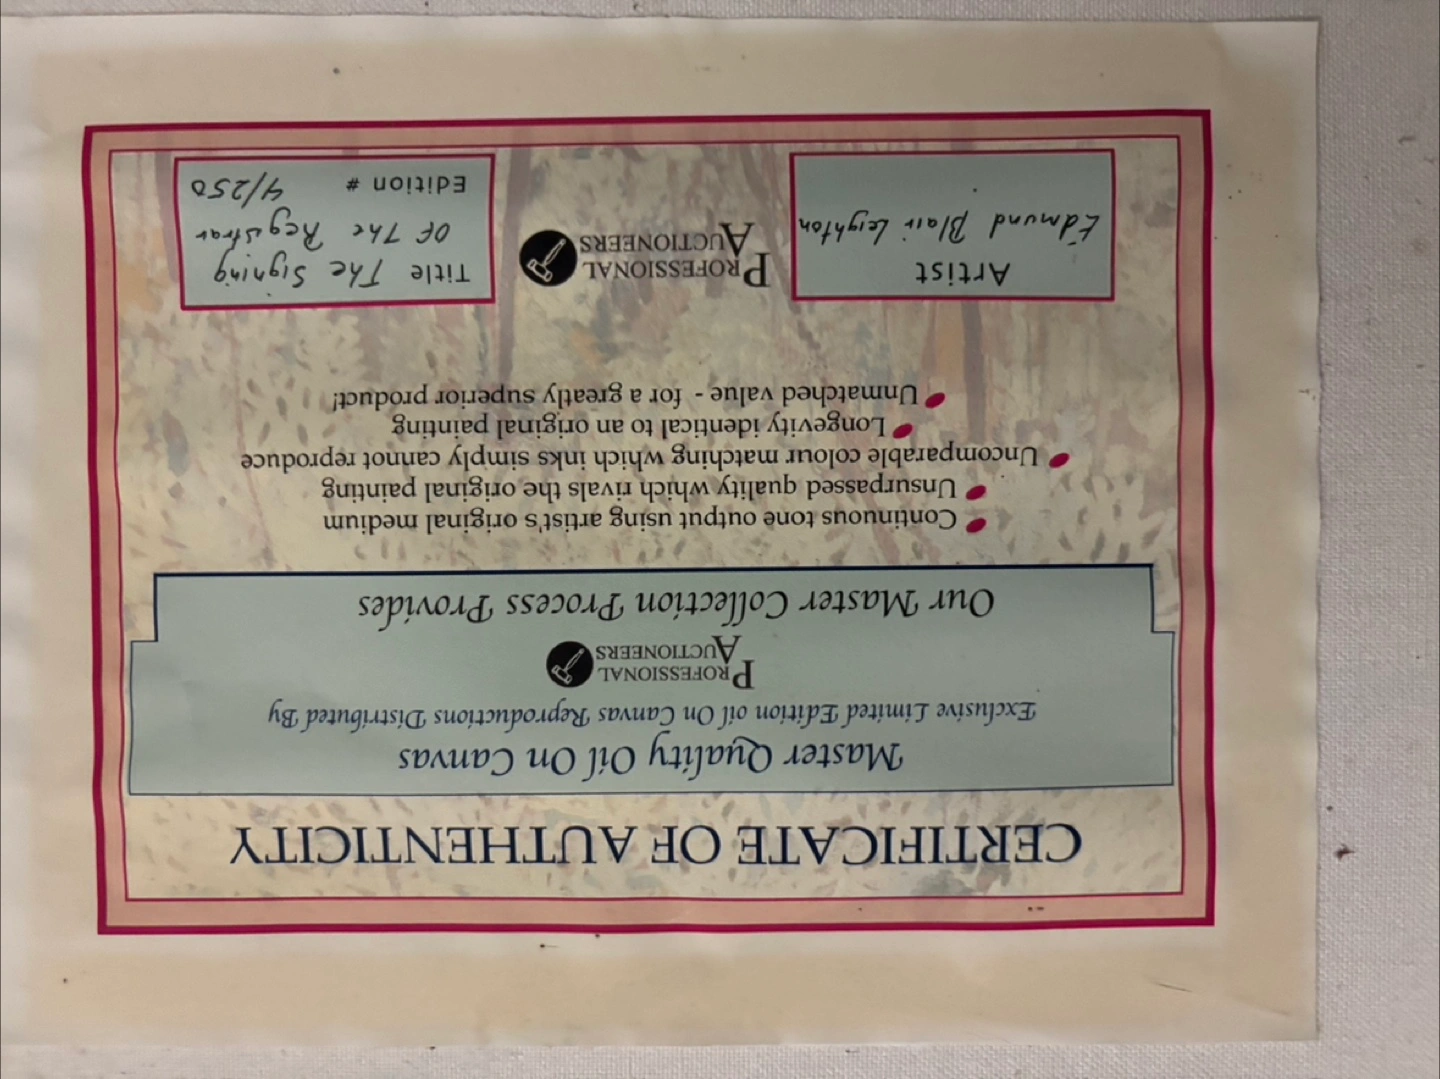 CERTIFICATE OF AUTHENTICITY
Master Quality Oil On Canvas
Exclusive Limited Edition oil On Canvas Reproductions Distributed By
PROFESSIONAL
AUCTIONEERS
Our Master Collection Process Provides
Continuous tone output using artist's original medium
Unsurpassed quality which rivals the original painting
Uncomparable colour matching which inks simply cannot reproduce
Longevity identical to an original painting
Unmatched value - for a greatly superior product!
Artist
Edmund Blair Leighton
PROFESSIONAL
AUCTIONEERS
Title The Signing
Of The Registrar
Edition # 4/250